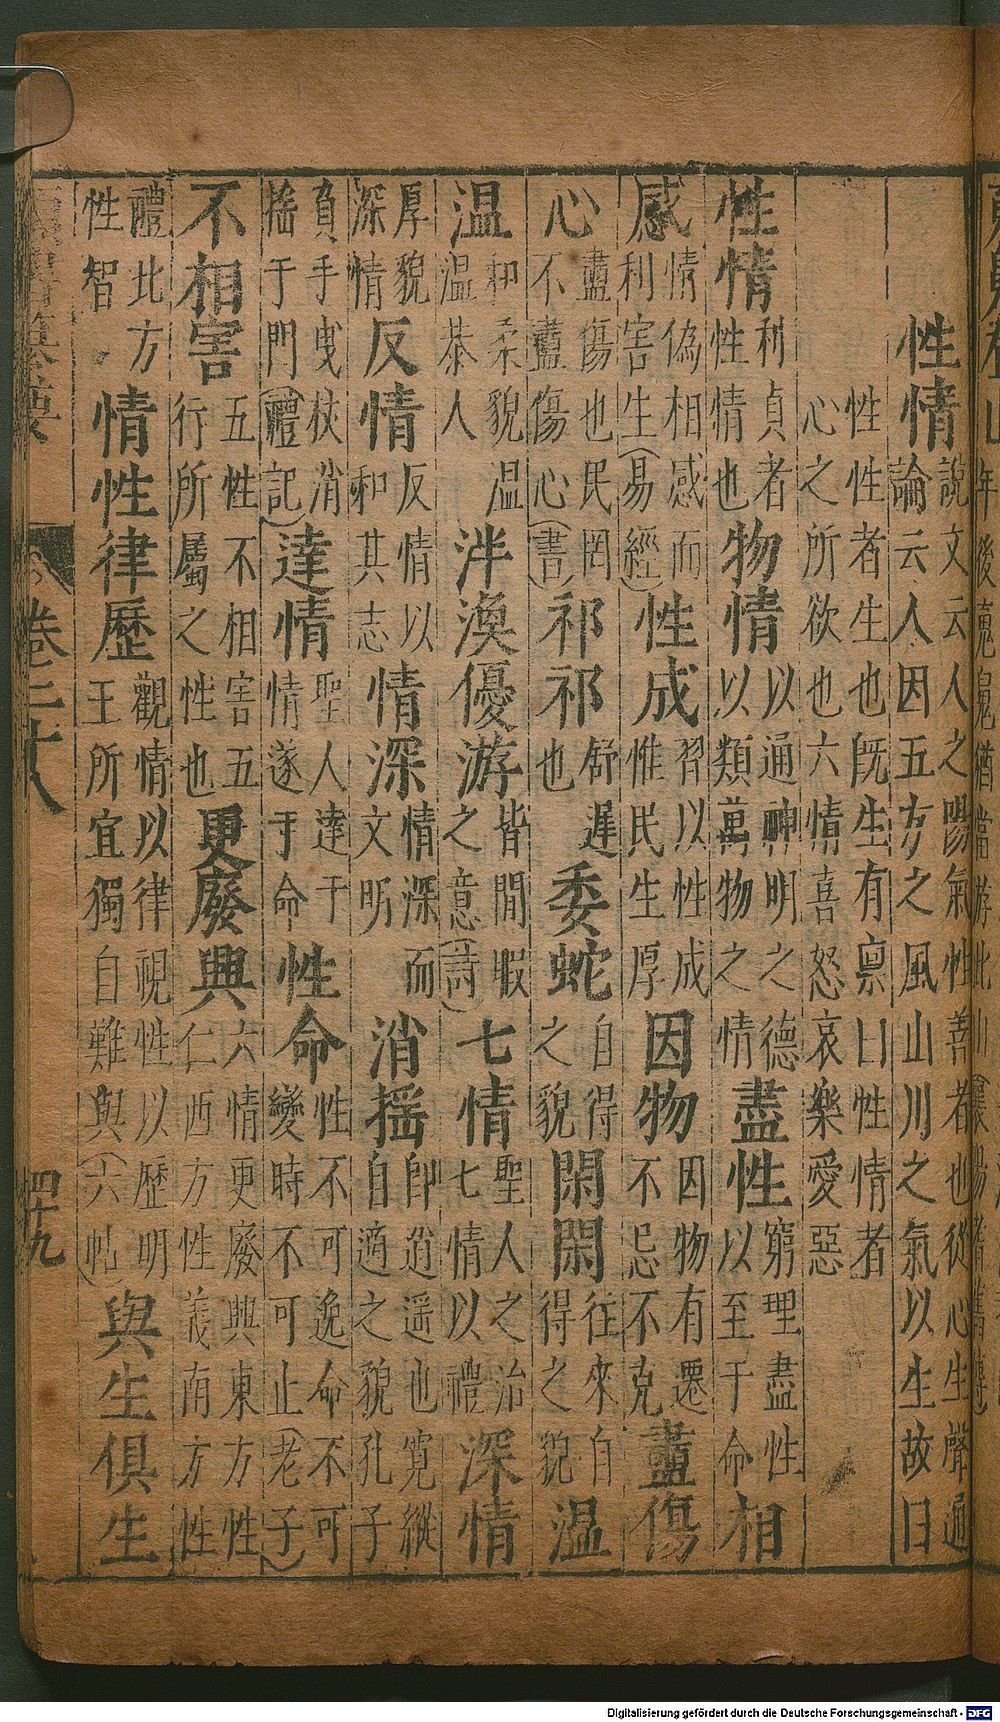 年後魂魄猶當游此山(襄陽耆舊傳)
性情說文云人之陽氣性善者也從心生聲通論云人因五方之風山川之氣以生故曰
性性者生也既生有禀曰性情者心之所欲也六情喜怒哀樂愛惡
性情利貞者性情也物情以通神明之德以類萬物之情盡性窮理盡性以至于命相
感情偽相感而利害生(易經)性成習以性成惟民生厚因物因物有遷不忌不克盡傷
心盡傷也民罔不盡傷心(書)祁祁舒遲也委蛇自得之貌閑閑往來自得之貌温
温和柔貌温温恭人泮渙優游皆閒暇之意(詩)七情聖人之治七情以禮深情
厚貌深情反情反情以和其志情深情深而文明消揺即逍遥也寛縱自適之貌孔子
負手曳杖消揺于門(禮記)達情聖人達于情遂于命性命性不可逸命不可變時不可止(老子)
不相害五性不相害五行所屬之性也更廢興六情更廢興東方性仁西方性義南方性
禮北方性智情性律歷觀情以律視性以歷明王所宜獨自難與(六帖)與生俱生
卷二十八
四十九
Digitalisierung gefördert durch die Deutsche Forschungsgemeinschaft - DFG